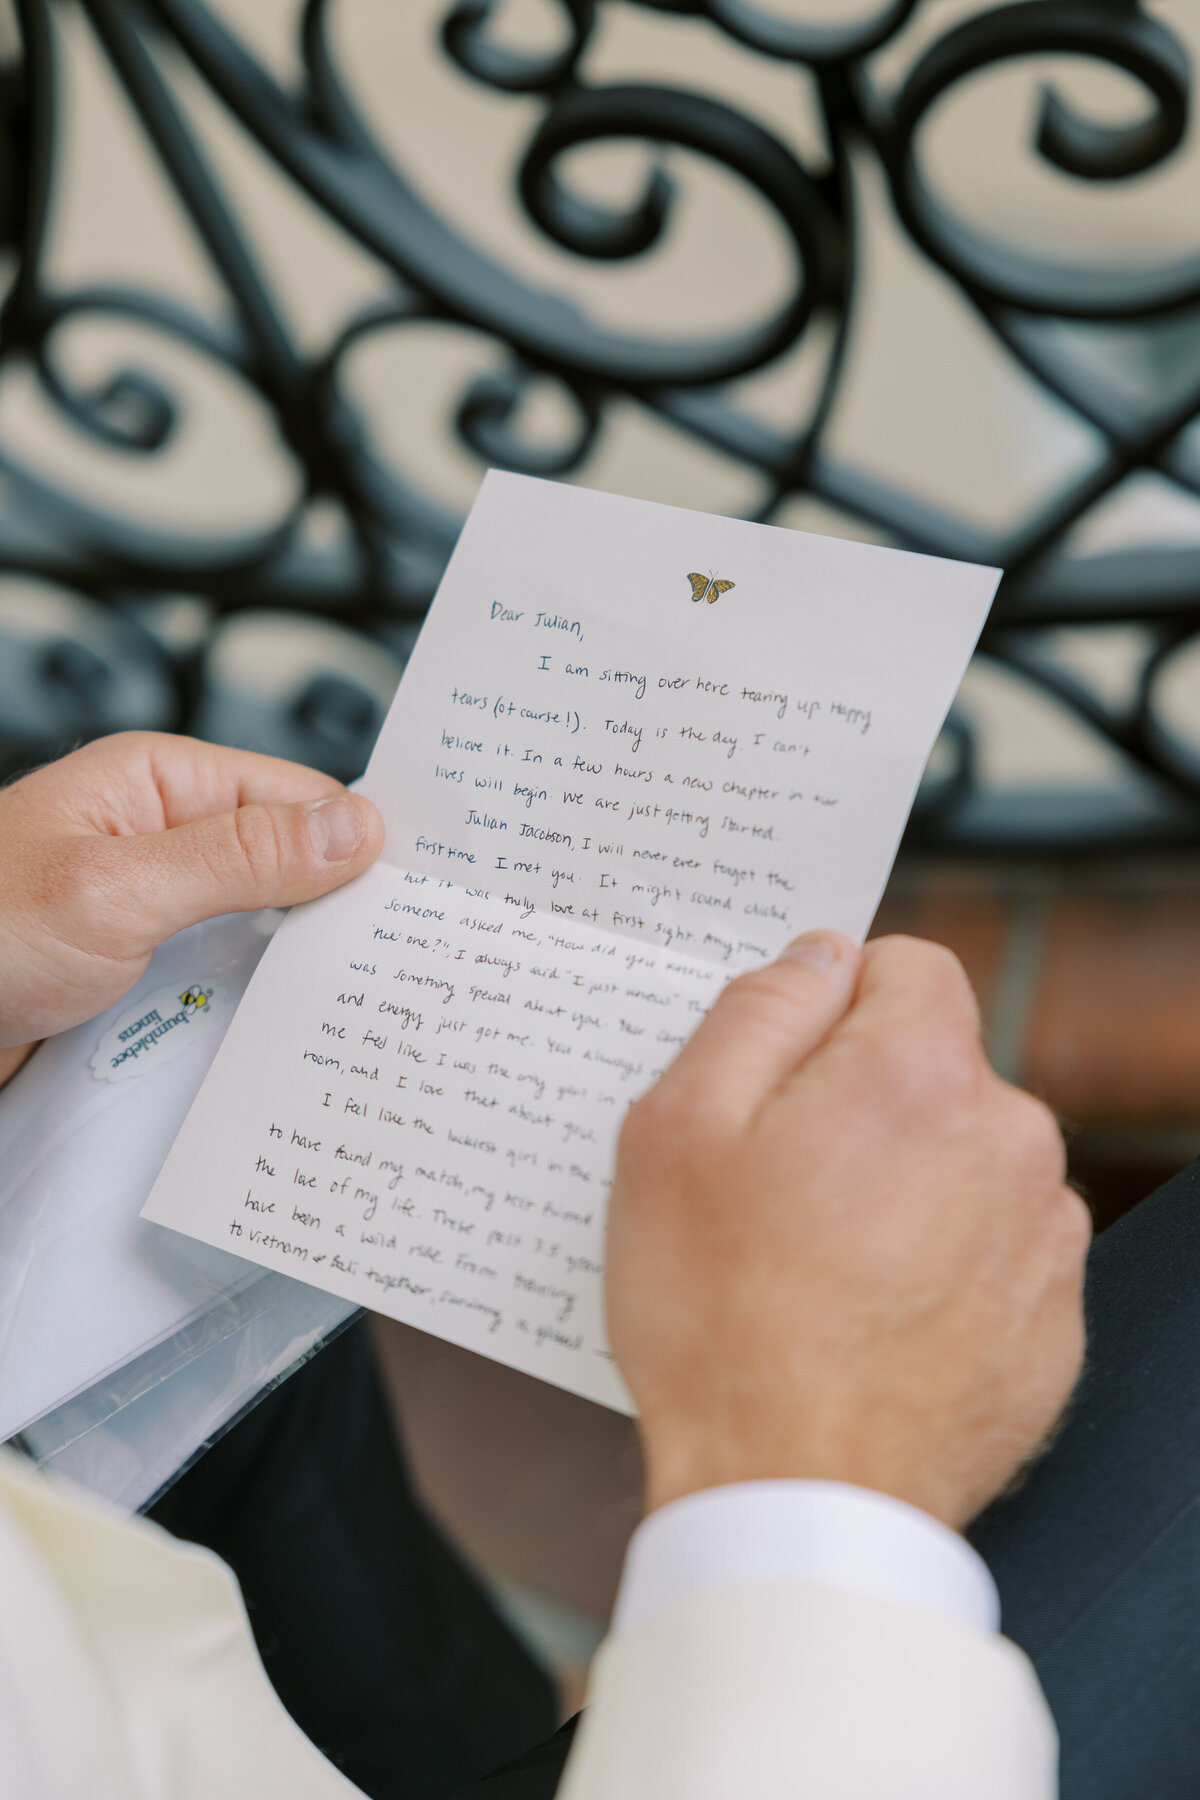 Dear Julian,
I am sitting over here tearing up. Happy
tears (of course!). Today is the day. I can't
believe it. In a few hours a new chapter in our
lives will begin. We are just getting started.
Julian Jacobson, I will never ever forget the
first time I met you. It might sound cliché,
but it was truly love at first sight. Any time
someone asked me, "How did you know
'the' one?", I always said "I just knew." 
was something special about you. Your
and energy just got me. You always
me feel like I was the only girl in
room, and I love that about you.
I feel like the luckiest girl in the
to have found my match, my best friend
the love of my life. These past 3.5 years
have been a wild ride. From traveling
to Vietnam & Bali together, surviving a global →
bumblebee
linens